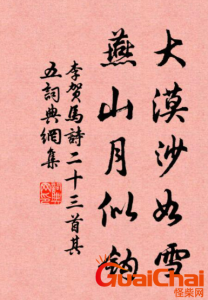 大漠沙如雪
燕山月似鈎
李賀馬詩二十三首其
五詞典網集
GuaiChai
怪柴网